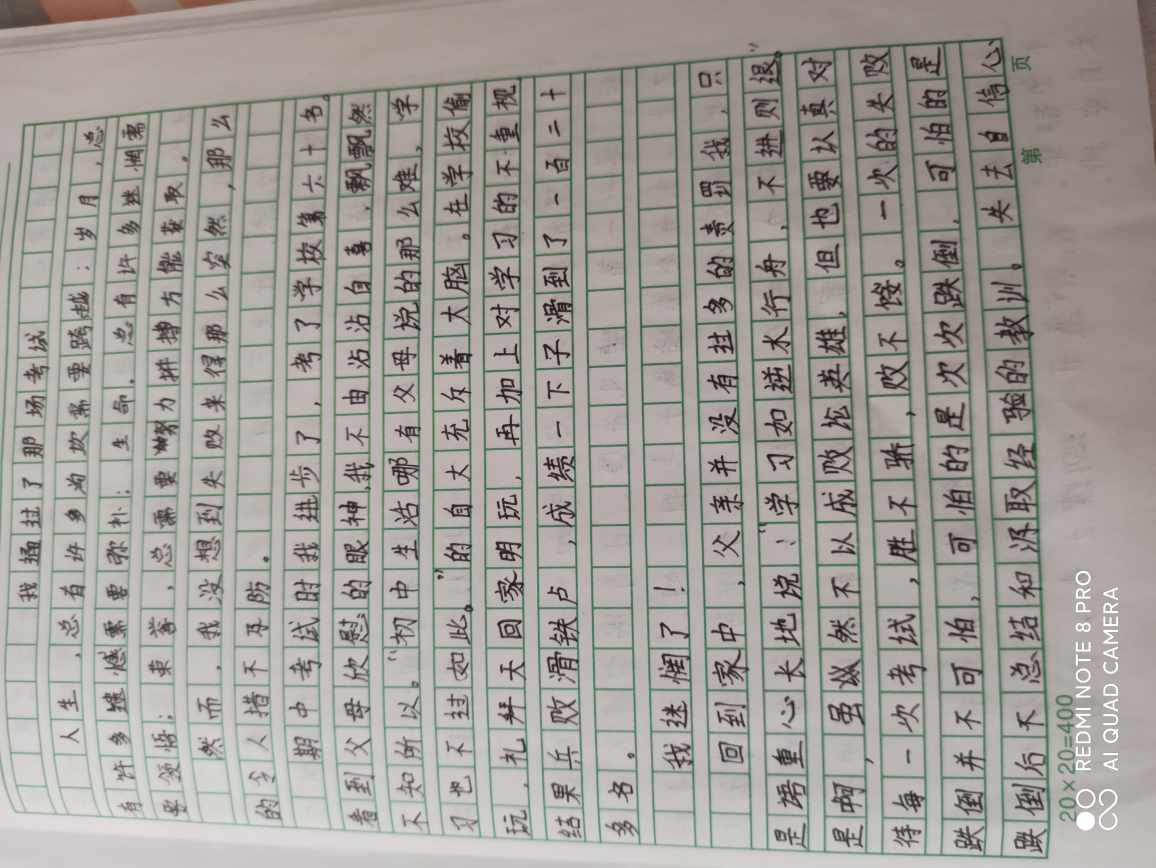 我挺过了那场考试
人生，总有许多沟坎需要跨越；岁月，总
有许多遗憾需要弥补；生命，总有许多迷惘需
要领悟；荣誉，总需要努力拼搏方能获取。
然而，我没想到失败来得那么突然，那么
的令人措不及防。
期中考试时我进步了，考了学校第六十名。
看到父母欣慰的眼神，我不由沾沾自喜，飘飘然
不知所以。"初中生活哪有父母说的那么难，学
习也不过如此。"的自大充斥着大脑。在学校偷
玩，礼拜天回家明玩，再加上对学习的不重视
结果兵败滑铁卢，成绩一下子滑到了一百二十
多名。
我迷惘了！
回到家中，父亲并没有过多的责罚我，只
是语重心长地说："学习如逆水行舟，不进则退。"
是啊，虽然不以成败论英雄，但也要认真对
待每一次考试，胜不骄，败不馁。一次的失败
跌倒并不可怕，可怕的是次次跌倒，可怕的是
跌倒后不总结和汲取经验的教训。失去自信心
第 页
20×20=400
REDMI NOTE 8 PRO
AI QUAD CAMERA